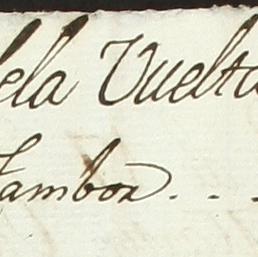 dela Vuelta
Tambor . . .